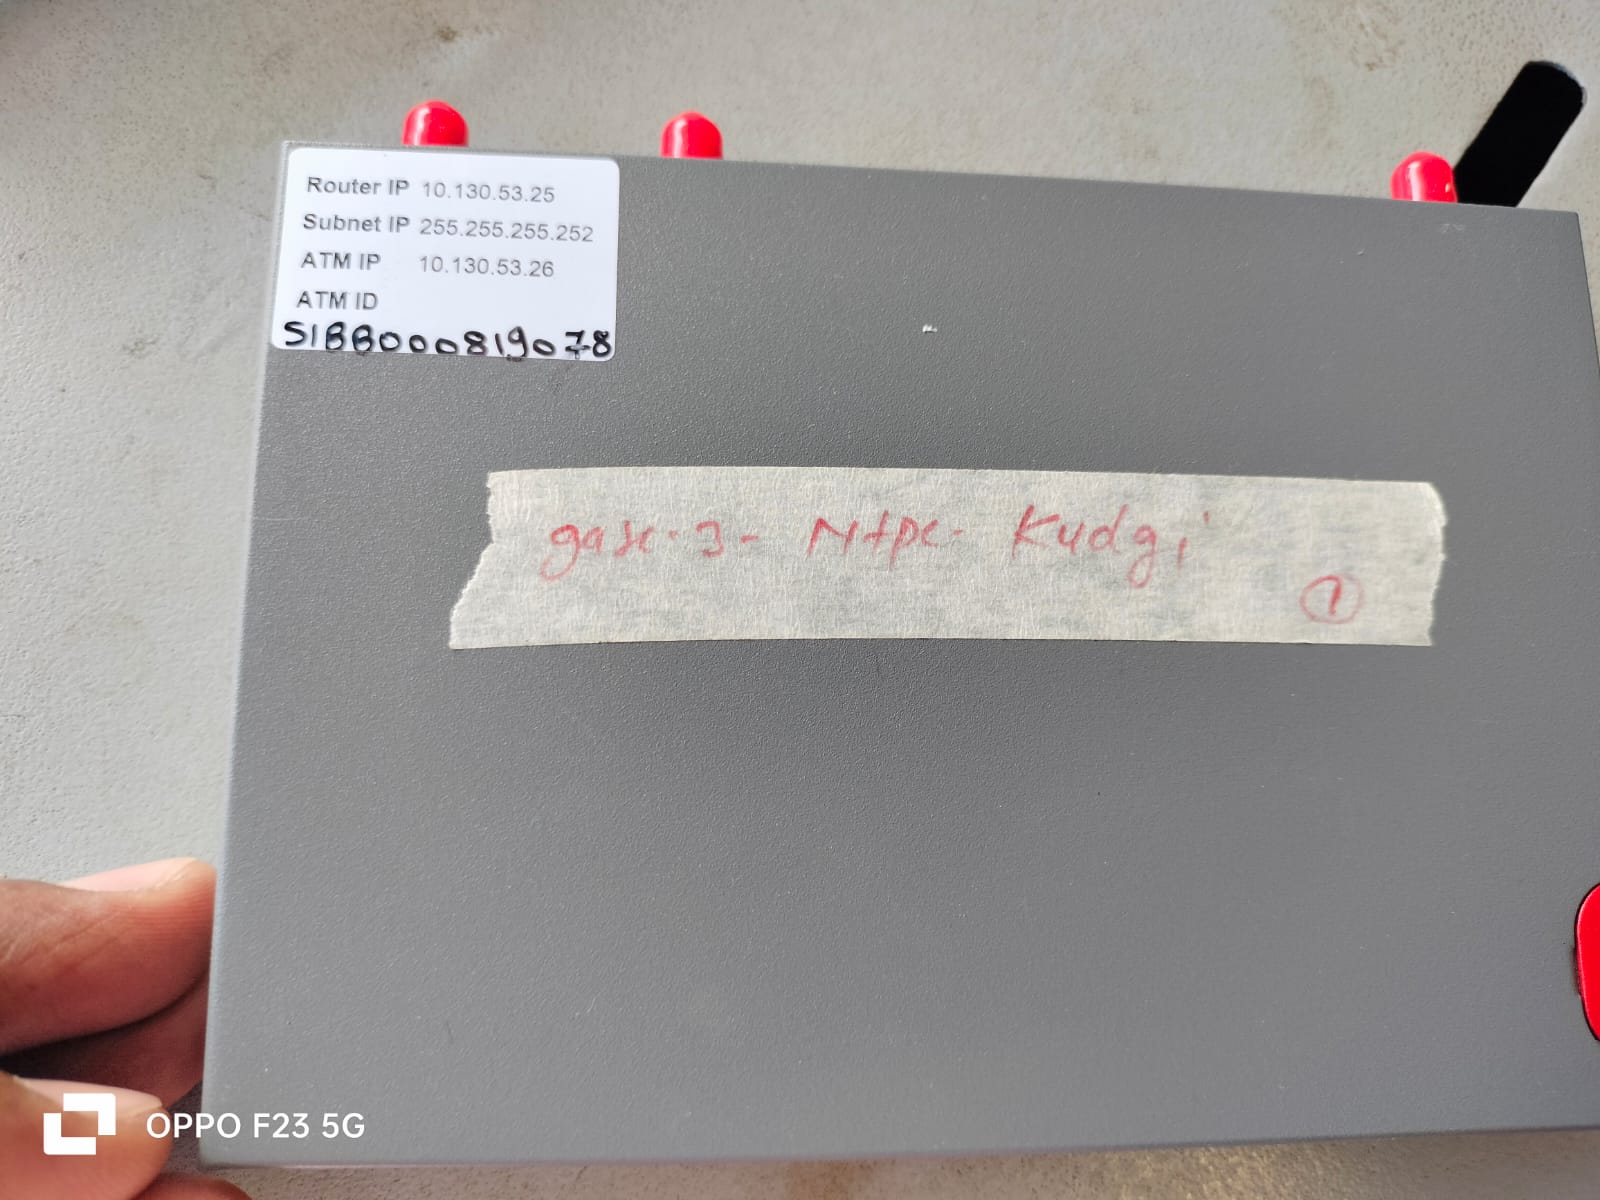 Router IP 10.130.53.25
Subnet IP 255.255.255.252
ATM IP 10.130.53.26
ATM ID
SIBB000819078
gate-3- Ntpc- Kudgi
1
OPPO F23 5G